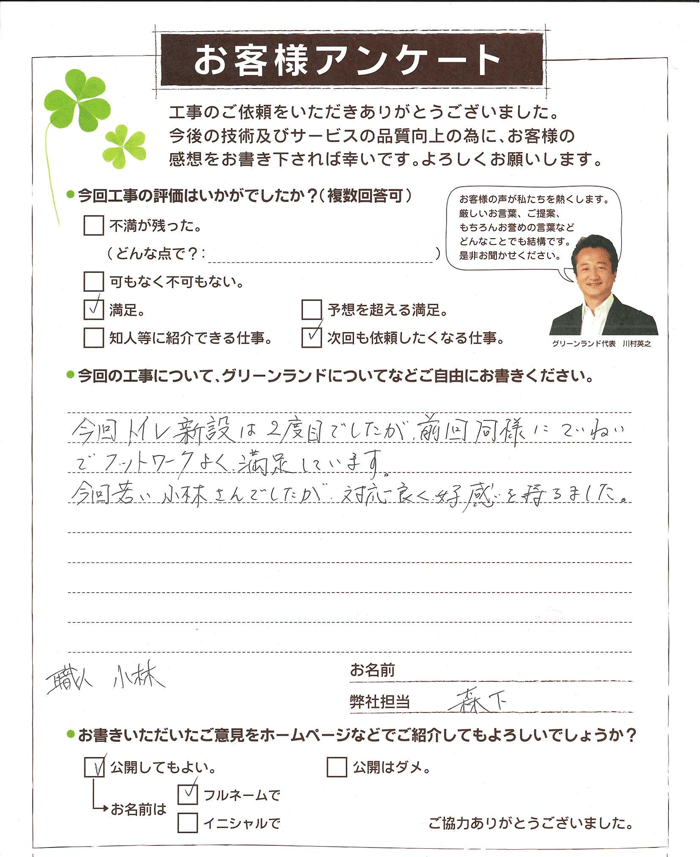 お客様アンケート
工事のご依頼をいただきありがとうございました。
今後の技術及びサービスの品質向上の為に、お客様の
感想をお書き下されば幸いです。よろしくお願いします。
今回工事の評価はいかがでしたか？（複数回答可）
不満が残った。
（どんな点で？：　　）
可もなく不可もない。
満足。
予想を超える満足。
知人等に紹介できる仕事。
次回も依頼したくなる仕事。
お客様の声が私たちを熱くします。
厳しいお言葉、ご提案、
もちろんお誉めの言葉など
どんなことでも結構です。
是非お聞かせください。
グリーンランド代表　川村英之
今回の工事について、グリーンランドについてなどご自由にお書きください。
今回トイレ新設は2度目でしたが、前回同様にていねい
でフットワークよく満足しています。
今回若い小林さんでしたが、対応良く好感を持てました。
職人 小林
お名前
弊社担当 森下
お書きいただいたご意見をホームページなどでご紹介してもよろしいでしょうか？
公開してもよい。
公開はダメ。
お名前は
フルネームで
イニシャルで
ご協力ありがとうございました。